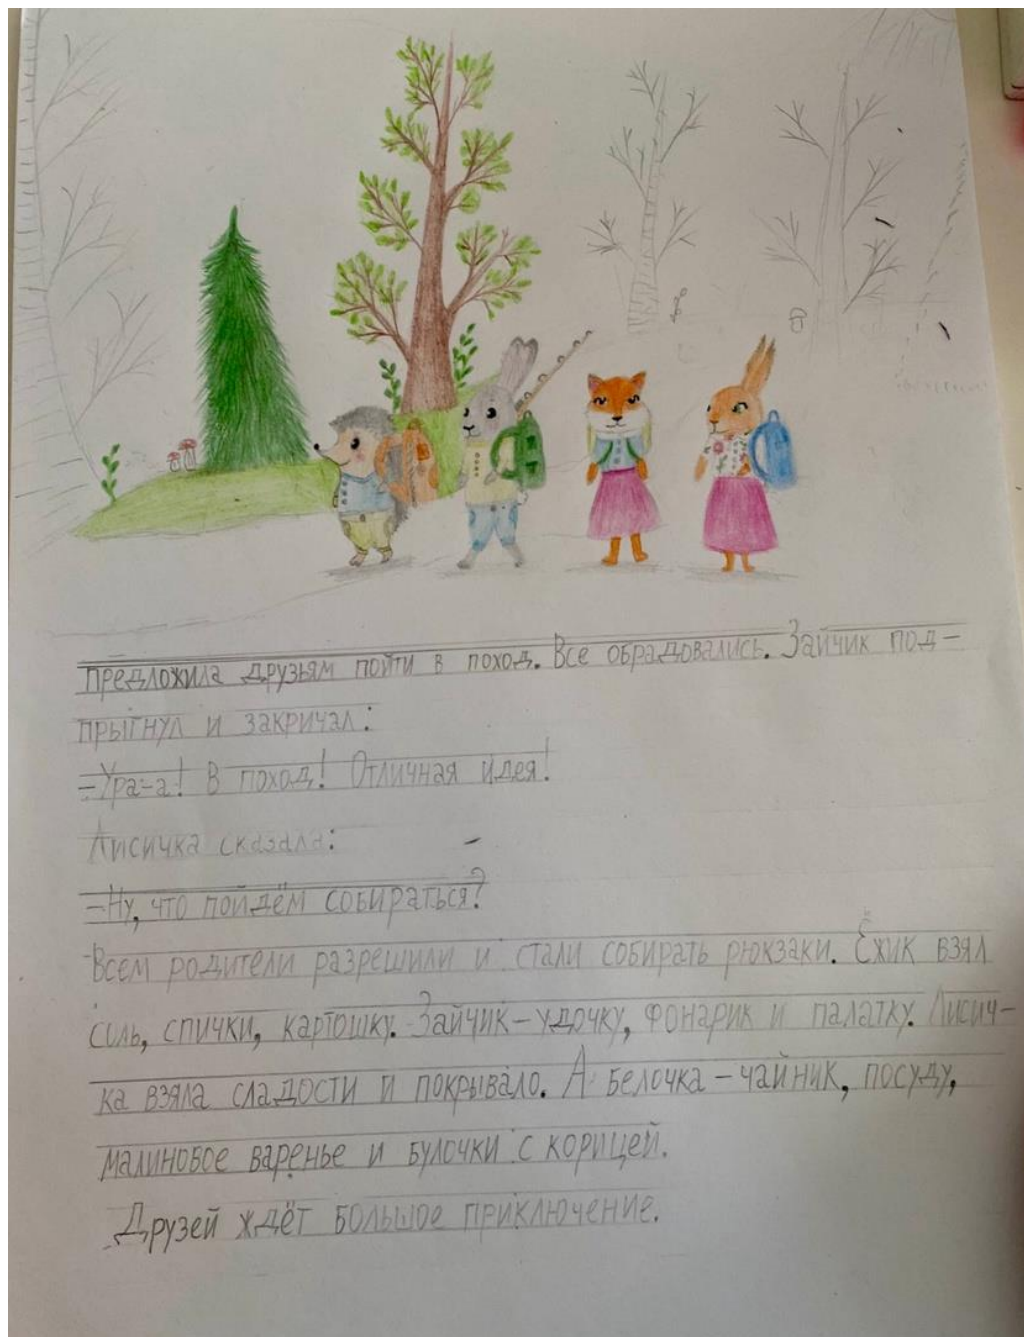 предложила друзьям пойти в поход. Все обрадовались. Зайчик под-
прыгнул и закричал:
-Ура-а! В поход! Отличная идея!
Лисичка сказала:
-Ну, что пойдём собираться?
Всем родители разрешили и стали собирать рюкзаки. Ёжик взял
соль, спички, картошку. Зайчик-удочку, фонарик и палатку. Лисич-
ка взяла сладости и покрывало. А белочка-чайник, посуду,
малиновое варенье и булочки с корицей.
Друзей ждёт большое приключение.